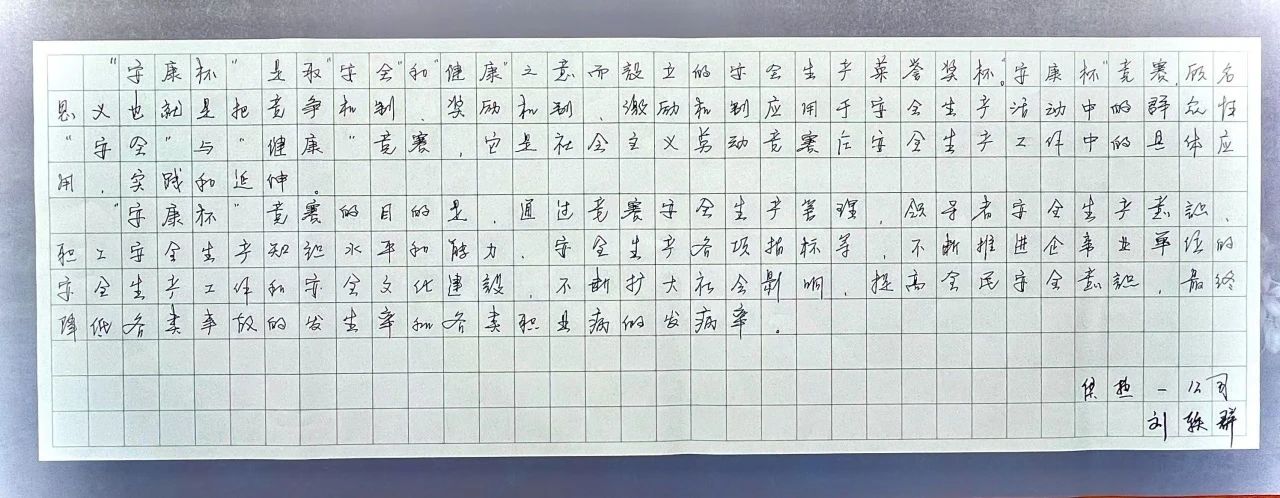 “安康杯”是取“安全”和“健康”之意而设立的安全生产荣誉奖杯。“安康杯”竞赛,顾名
思义也就是把竞争机制、奖励机制、激励机制应用于安全生产活动中的群众性
“安全”与“健康”竞赛,它是社会主义劳动竞赛在安全生产工作中的具体应
用、实践和延伸。
“安康杯”竞赛的目的是,通过竞赛安全生产管理、领导者安全生产意识、
职工安全生产知识水平和能力、安全生产各项指标等,不断推进企事业单位的
安全生产工作和安全文化建设,不断扩大社会影响,提高全民安全意识,最终
降低各类事故的发生率和各类职业病的发病率。
供热一公司
刘 群